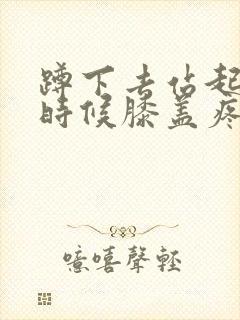 蹲下去站起
时候膝盖疼
噫嘻聲輕